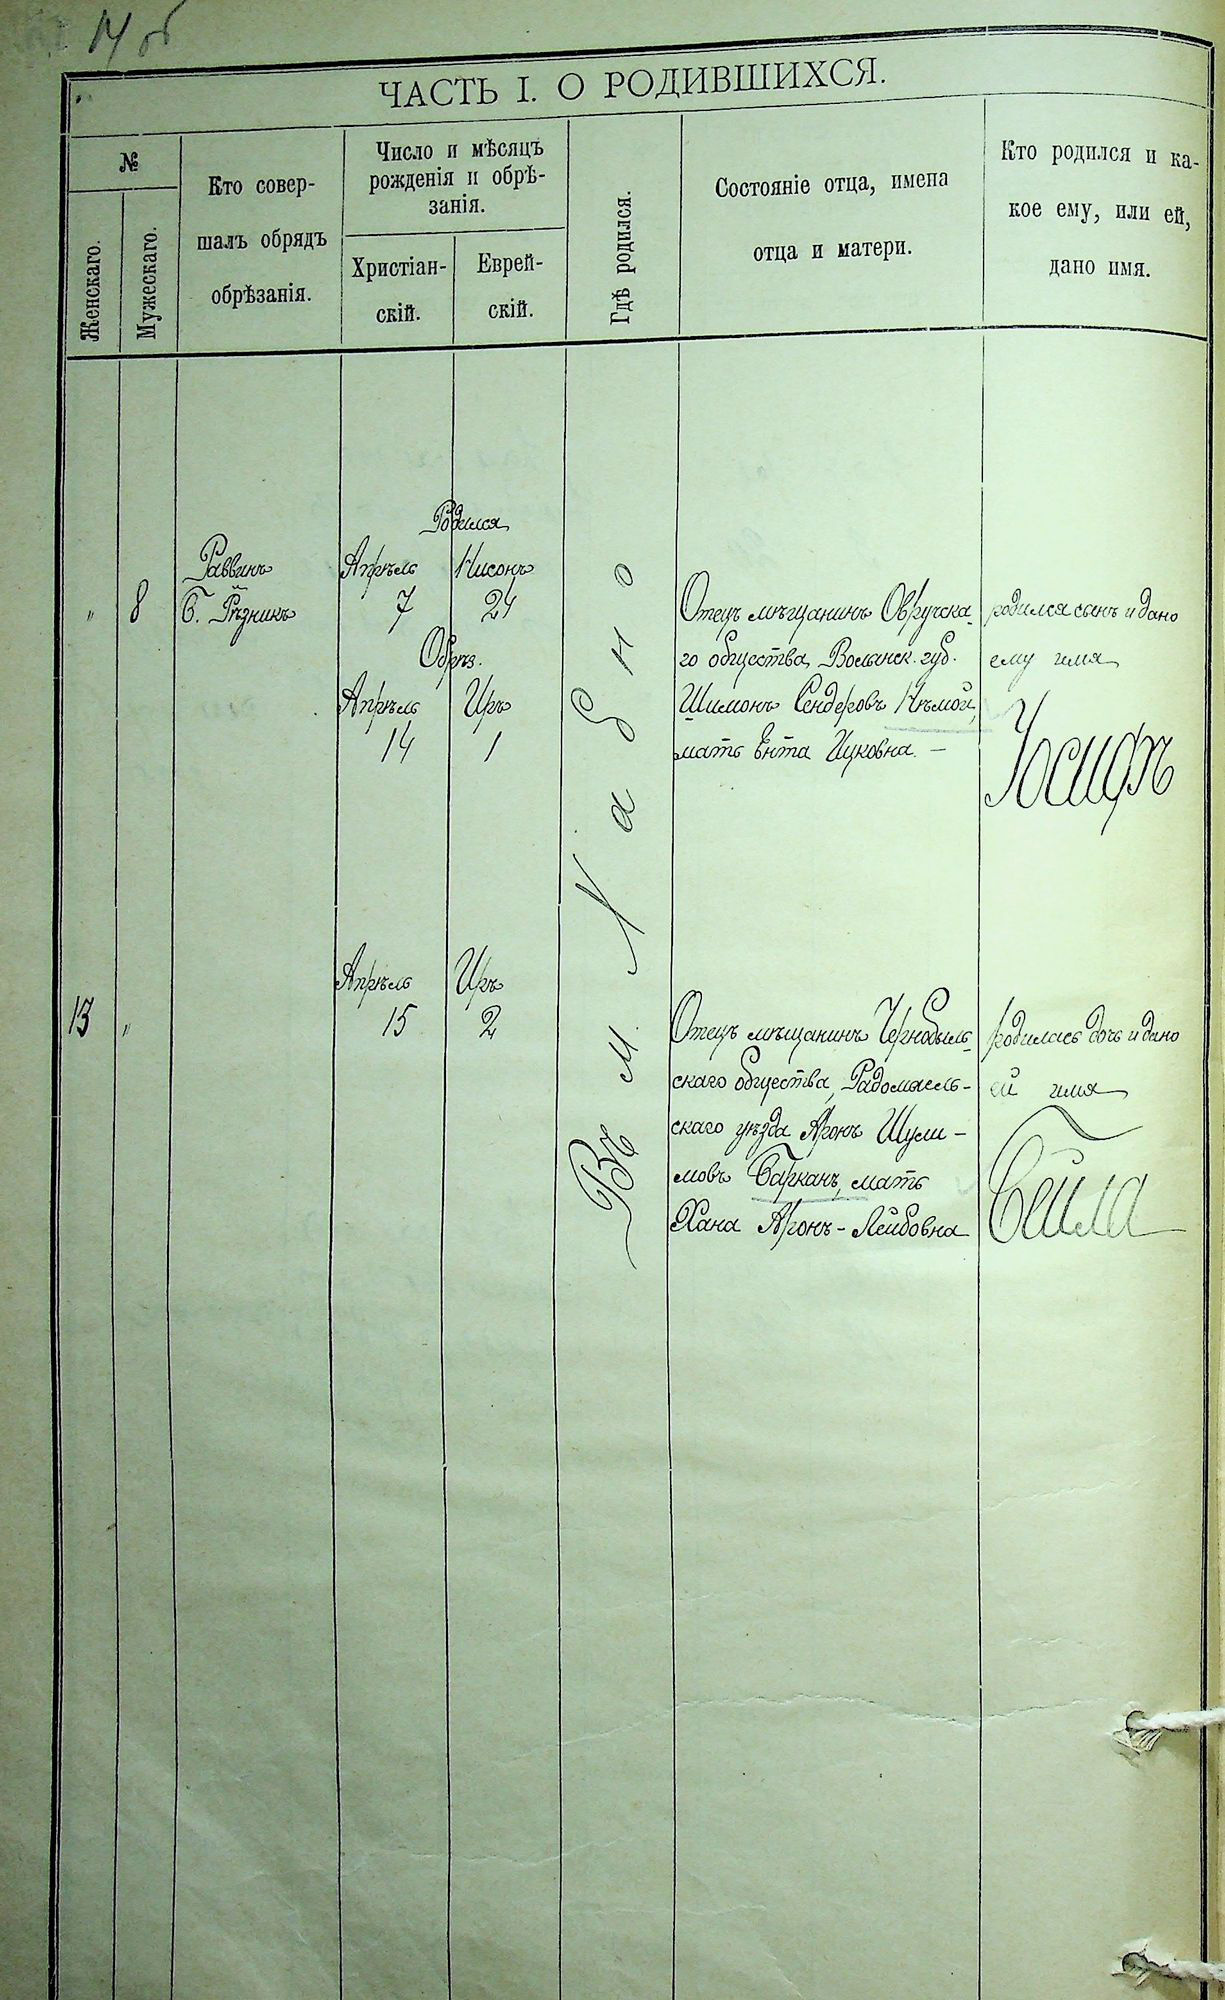 14 об
ЧАСТЬ I. О РОДИВШИХСЯ.
№
Женскаго.
Мужескаго.
Кто совер-
шалъ обрядъ
обрѣзанія.
Число и мѣсяцъ
рожденія и обрѣ-
занія.
Христіан-
скій.
Еврей-
скій.
Гдѣ родился.
Состояніе отца, имена
отца и матери.
Кто родился и ка-
кое ему, или ей,
дано имя.
Въ м. Хабно
„ 8
Раввинъ
Б. Рѣзникъ
Родился
Апрѣль Нисонъ
7 24
Обрѣз.
Апрѣль Иръ
14 1
Отецъ мѣщанинъ Овручска-
го общества, Волынск. губ.
Шимонъ Сендеровъ Нѣмой,
мать Ента Ицковна. –
родился сынъ и дано
ему имя
Іосифъ
13 „
Апрѣль Иръ
15 2
Отецъ мѣщанинъ Чернобыль-
скаго общества, Радомысль-
скаго уѣзда Аронъ Шули-
мовъ Барканъ, мать
Хана Аронъ-Лейбовна
родилась дочь и дано
ей имя
Бейла